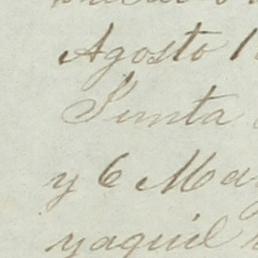 Agosto 1
Junta
y 6 Ma
yaquil